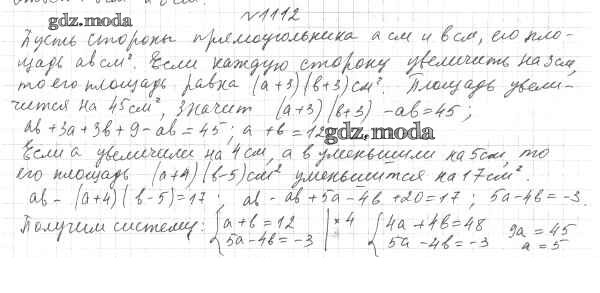 №1112
gdz.moda
Пусть стороны прямоугольника a см и b см, его пло-
щадь ab см². Если каждую сторону увеличить на 3 см,
то его площадь равна (a+3)(b+3) см². Площадь увели-
чится на 45 см², значит (a+3)(b+3) - ab = 45;
ab + 3a + 3b + 9 - ab = 45; a + b = 12
gdz.moda
Если a увеличили на 4 см, а b уменьшили на 5 см, то
его площадь (a+4)(b-5) см² уменьшится на 17 см².
ab - (a+4)(b-5) = 17; ab - ab + 5a - 4b + 20 = 17; 5a - 4b = -3.
Получим систему: { a + b = 12 | × 4 { 4a + 4b = 48 9a = 45
5a - 4b = -3 5a - 4b = -3 a = 5